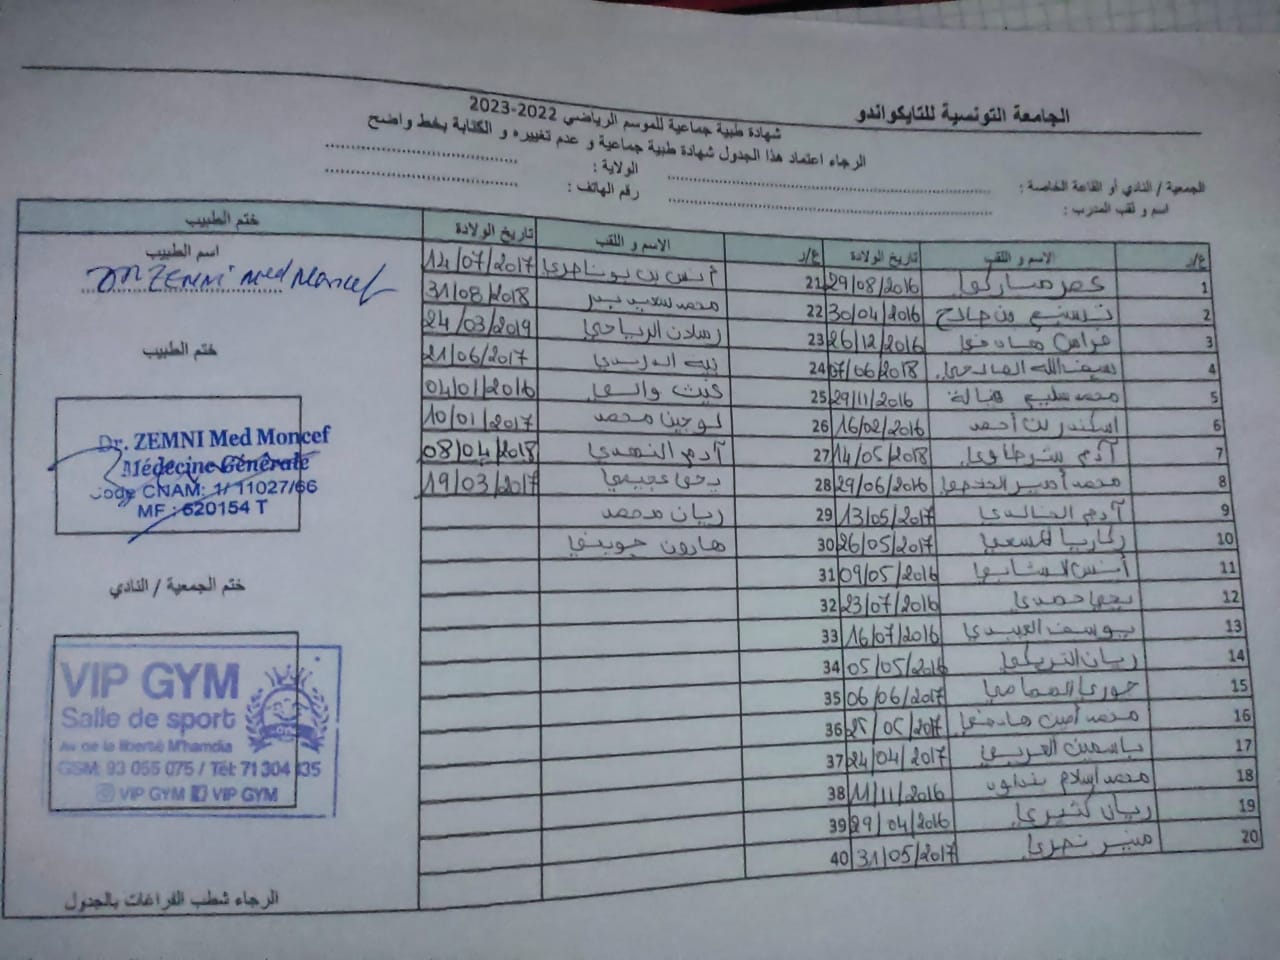 الجامعة التونسية للتايكواندو
شهادة طبية جماعية للموسم الرياضي 2022-2023
الرجاء اعتماد هذا الجدول شهادة طبية جماعية و عدم تغييره و الكتابة بخط واضح
الجمعية / النادي أو القاعة الخاصة : الولاية :
اسم و لقب المدرب : رقم الهاتف :
ع/ر الاسم و اللقب تاريخ الولادة ع/ر الاسم و اللقب تاريخ الولادة ختم الطبيب
1 عمر مباركي 29/08/2016
2 تسنيم بن صالح 30/04/2016
3 فراس هادفي 26/12/2016
4 سيف الله الصالحي 07/06/2018
5 محمد سليم 29/11/2016
6 اسكندر بن أحمد 16/02/2016
7 آدم شرطاوي 14/05/2018
8 محمد أمير 29/06/2016
9 آدم الخالدي 13/05/2017
10 زكاريا المسعي 26/05/2017
11 أنس الشابي 09/05/2016
12 يحي حمدي 23/07/2016
13 يوسف العبيدي 16/07/2016
14 ريان التريكي 05/05/2016
15 جوري الهمامي 06/06/2017
16 محمد أمين هادفي 25/05/2017
17 ياسمين العربي 24/04/2017
18 محمد إسلام 11/11/2016
19 ريان كثيري 29/04/2016
20 منير نصري 31/05/2017
21 أنس بن بوناجري 14/07/2017
22 محمد بدر 31/08/2018
23 رسلان الرياحي 24/03/2019
24 الدريدي 21/06/2017
25 غيث وانسي 04/01/2016
26 لوجين محمد 10/01/2017
27 آدم النهدي 08/04/2018
28 يحي عجيمي 19/03/2017
29 ريان محمد
30 هارون جويني
31
32
33
34
35
36
37
38
39
40
اسم الطبيب
Dr ZEMNI Med Moncef
ختم الطبيب
Dr. ZEMNI Med Moncef
Médecine Générale
Code CNAM: 1/ 11027/66
MF : 620154 T
ختم الجمعية / النادي
VIP GYM
Salle de sport
Av de la liberté M'hamdia
GSM: 93 055 075 / Tél: 71 304 435
VIP GYM VIP GYM
الرجاء شطب الفراغات بالجدول